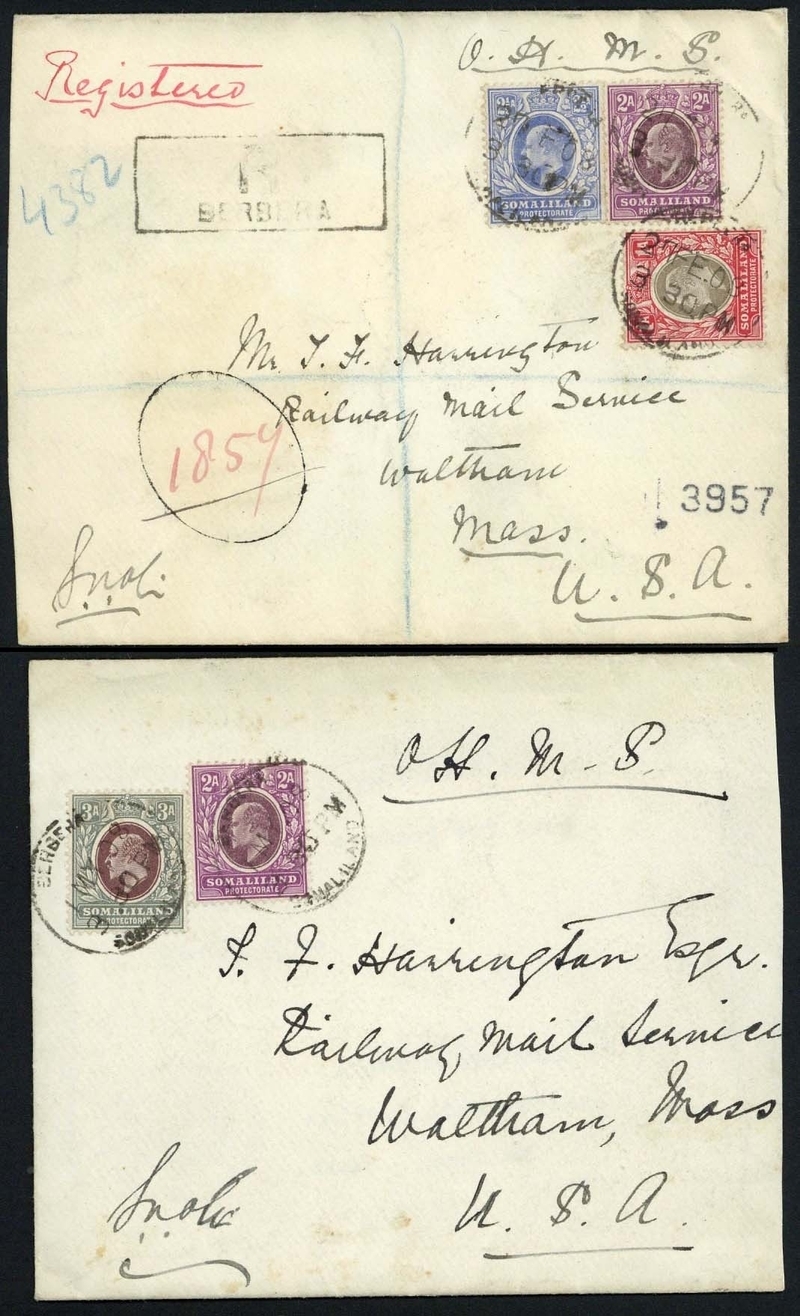 Registered
O. H. M. S.
4382
R
BERBERA
2½A
SOMALILAND
PROTECTORATE
2A 2A
SOMALILAND
PROTECTORATE
1A
SOMALILAND
PROTECTORATE
30 PM
Harrington
Railway Mail Service
Waltham
Mass.
U. S. A.
3957
OH. M - S
3A 3A
SOMALILAND
PROTECTORATE
BERBERA
MY
2A 2A
SOMALILAND
PROTECTORATE
30 PM
SOMALILAND
Harrington Esqr.
Railway Mail Service
Waltham, Mass
U. S. A.